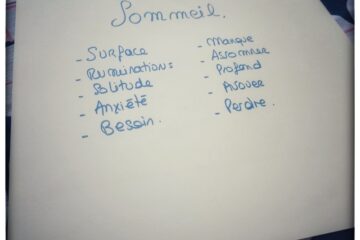 Sommeil.
- Surface
- Ruminations
- Solitude
- Anxiété
- Besoin.
- Manque
- Assommer
- Profond
- Avouer
- Perdre.